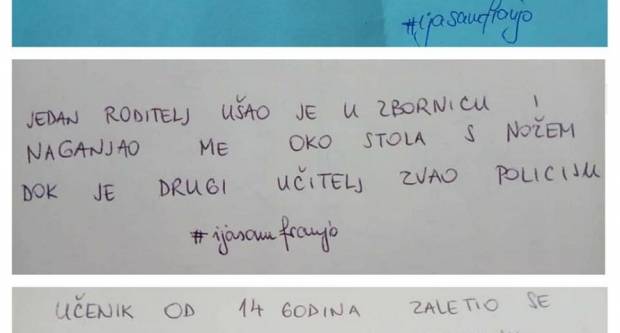 #ijasamfranjo
JEDAN RODITELJ UŠAO JE U ZBORNICU I
NAGANJAO ME OKO STOLA S NOŽEM
DOK JE DRUGI UČITELJ ZVAO POLICIJU
#ijasamfranjo
UČENIK OD 14 GODINA ZALETIO SE